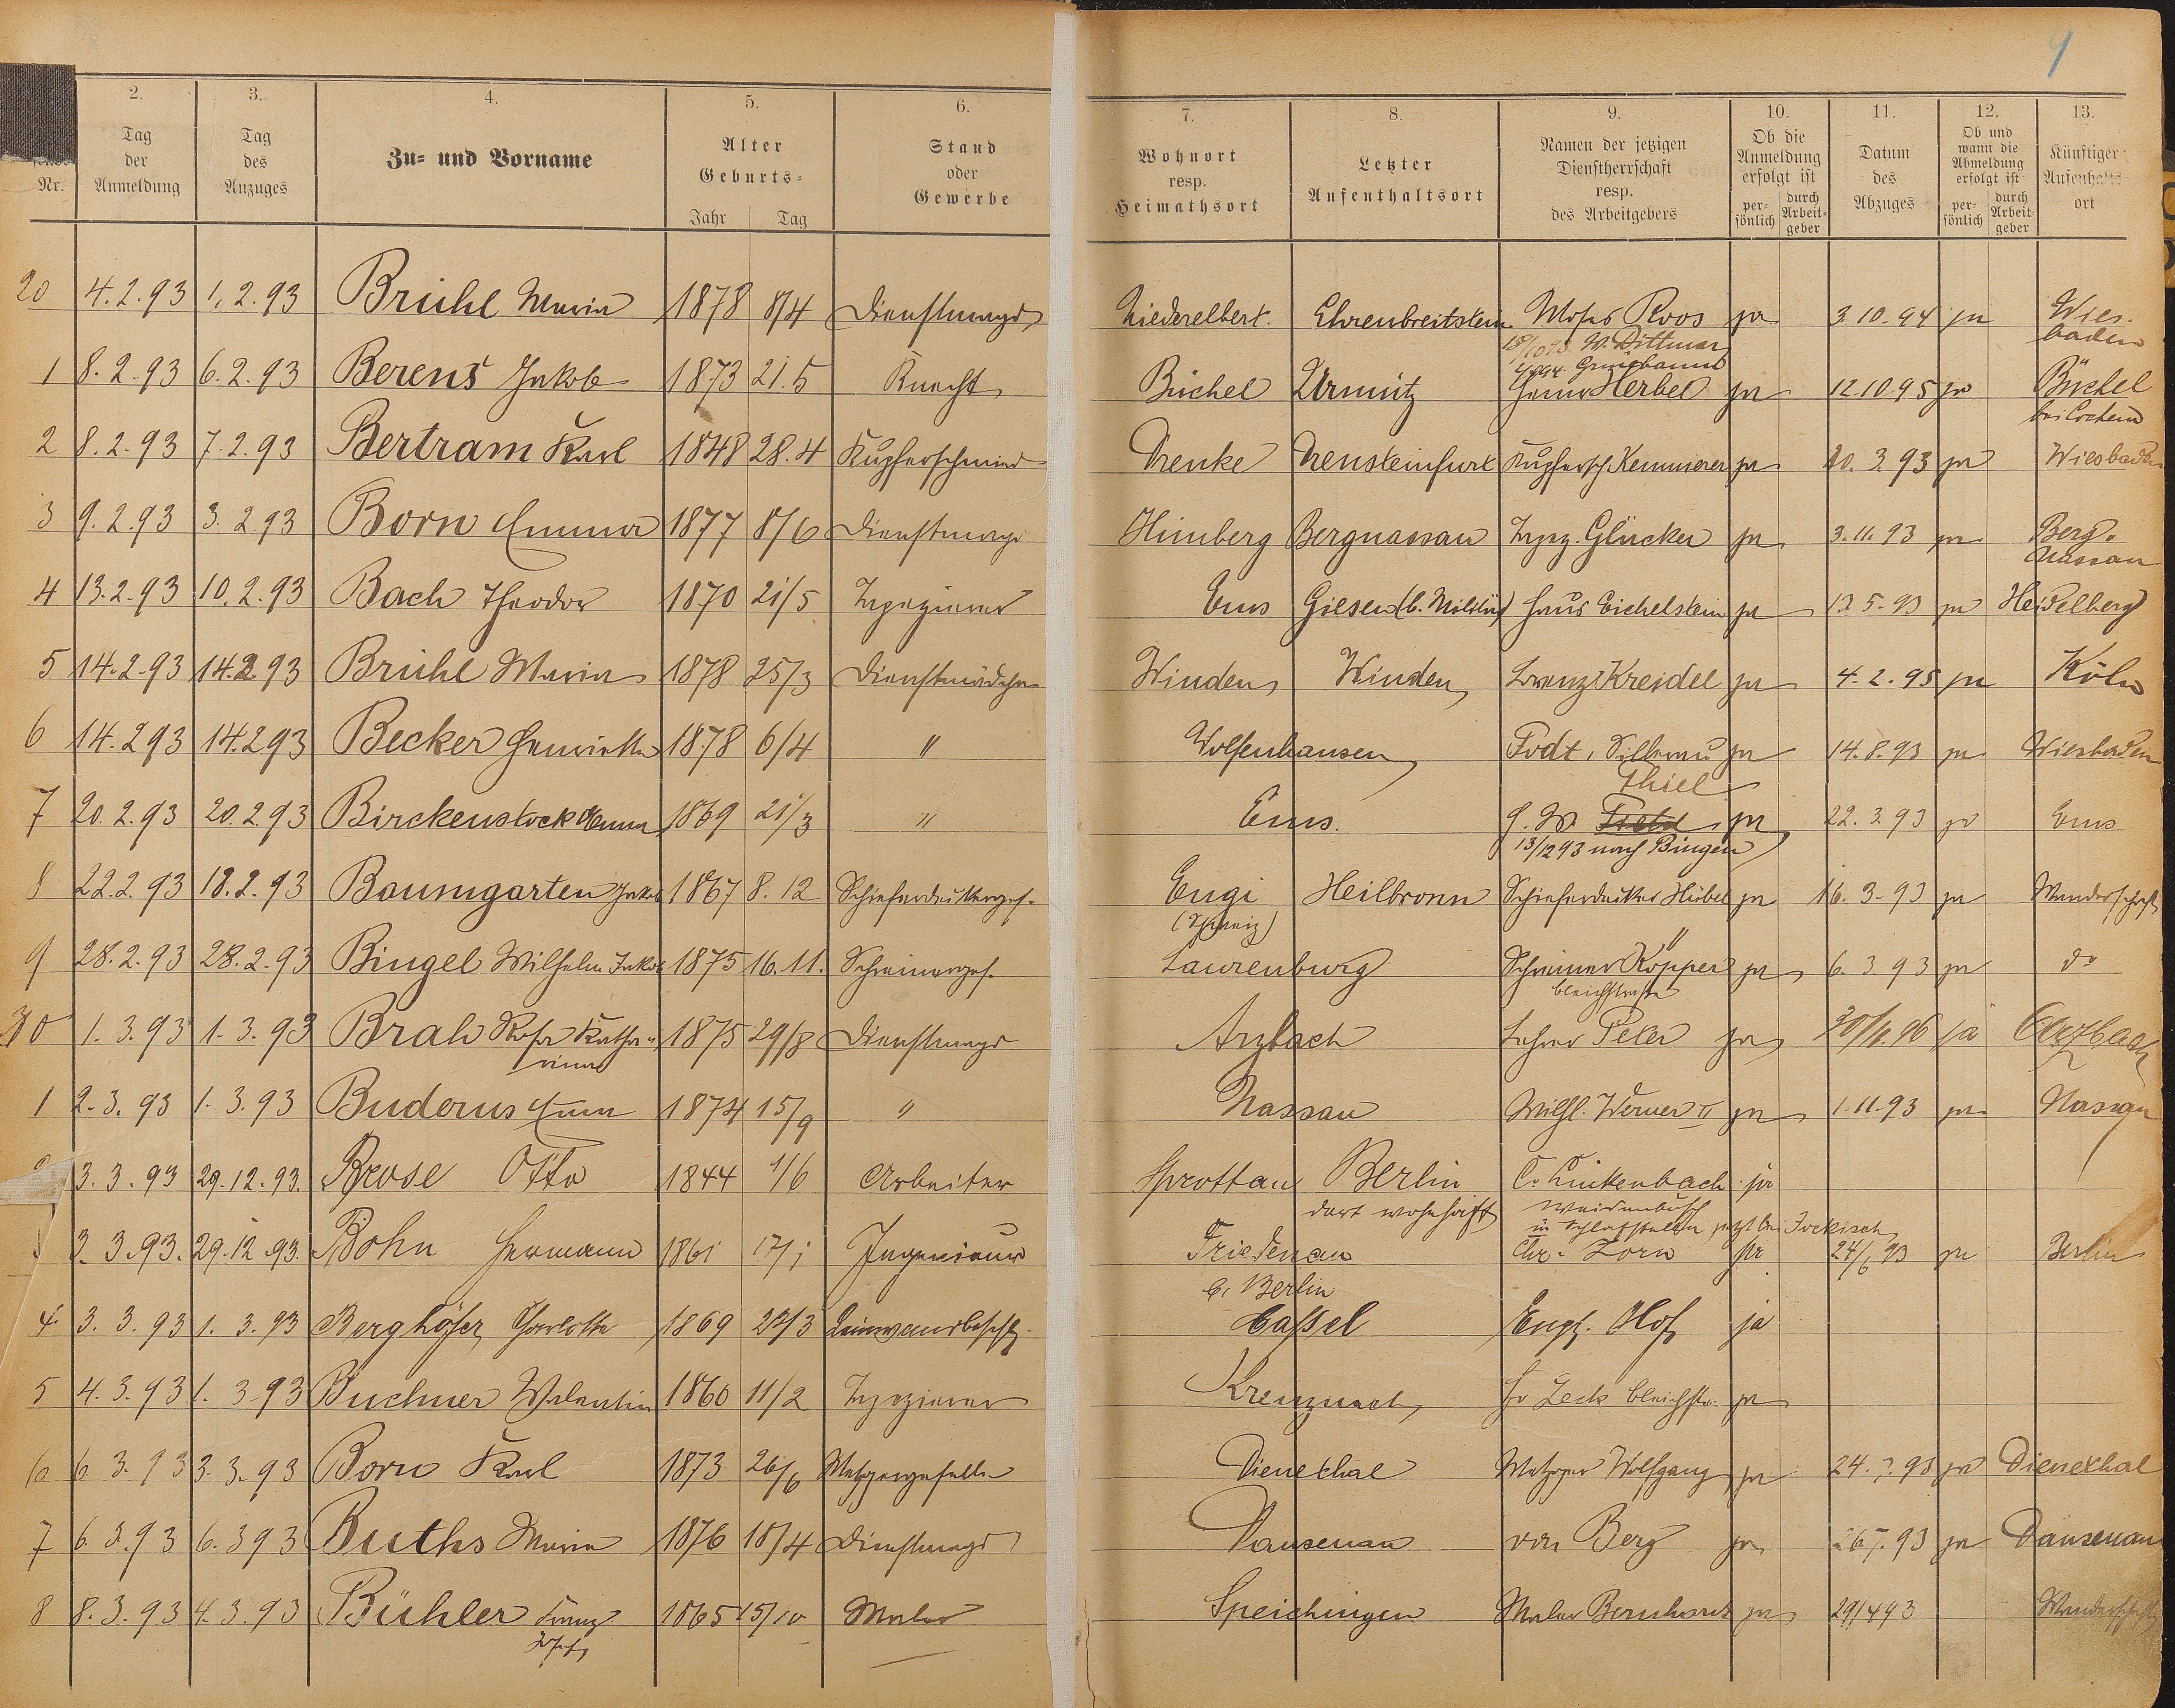 9
2. 3. 4. 5. 6. 7. 8. 9. 10. 11. 12. 13.
Nr. | Tag der Anmeldung | Tag des Anzuges | Zu- und Vorname | Alter Geburts- Jahr Tag | Stand oder Gewerbe | Wohnort resp. Heimathsort | Letzter Aufenthaltsort | Namen der jetzigen Dienstherrschaft resp. des Arbeitgebers | Ob die Anmeldung erfolgt ist persönlich durch Arbeitgeber | Datum des Abzuges | Ob und wann die Abmeldung erfolgt ist persönlich durch Arbeitgeber | Künftiger Aufenthaltsort
20 4.2.93 1.2.93 Brühl Maria 1878 8/4 Dienstmagd Niederelbert. Ehrenbreitstein Moses Roos ja 3.10.94 ja Wiesbaden
W. Dittmar
1 8.2.93 6.2.93 Berens Jakob 1873 21.5 Knecht Büchel Urmitz Herbel ja 12.10.95 ja Büchel bei Cochem
2 8.2.93 7.2.93 Bertram Karl 1848 28.4 Kupferschmied Drenke Drensteinfurt Kupfersch. Kemmerer ja 20.3.93 ja Wiesbaden
3 9.2.93 3.2.93 Born Emma 1877 8/6 Dienstmagd Himberg Bergnassau Tapez. Glücker ja 3.11.93 ja Berg-Nassau
4 13.2.93 10.2.93 Bach Theodor 1870 21/5 Tapezierer Ems Giesen (b. Militär) Haus Eichelstein ja 13.5.93 ja Heidelberg
5 14.2.93 14.2.93 Brühl Maria 1878 25/3 Dienstmädchen Winden Winden Kreidel ja 4.2.95 ja Köln
6 14.2.93 14.2.93 Becker Henriette 1878 6/4 " Wolfenhausen Fodt, Silberau ja 14.8.93 ja Wiesbaden
Thiel
7 20.2.93 20.2.93 Birckenstock Anna 1869 21/3 " Ems. ja 22.3.93 ja Ems
13/12 93 nach Bingen
8 22.2.93 18.2.93 Baumgarten Jakob 1867 8.12 Schieferdeckerges. Engi Heilbronn Schieferdecker Hübel ja 16.3.93 ja Wanderschaft
(Schweiz)
9 28.2.93 28.2.93 Bingel Wilhelm Jakob 1875 16.11. Schreinerges. Laurenburg Schreiner Köpper ja 6.3.93 ja do
Bleichstraße
30 1.3.93 1.3.93 Brah Rosa Katharina 1875 29/8 Dienstmagd Arzbach Lehrer Peter ja ja Arzbach
1 2.3.93 1.3.93 Buderus Anna 1874 15/9 " Nassau Wilh. Werner II ja 1.11.93 ja Nassau
3.3.93 29.12.93. Brose Otto 1844 1/6 Arbeiter Sprottau Berlin C. Linkenbach ja
dort wohnhaft Weidenbusch
in Schlafstelle jetzt bei Jockisch
3.3.93. 29.12.93. Bohn Hermann 1861 17/1 Ingenieur Friedenau Chr. Zorn ja 24/6 93 ja Berlin
b. Berlin
4 3.3.93 1.3.93 Berghöfer Charlotte 1869 Cassel Engl. Hof ja
5 4.3.93 1.3.93 Buchner Valentin 1860 11/2 Tapezierer Kreuznach Leck Bleichstr. ja
6 6.3.93 3.3.93 Born Karl 1873 26/6 Metzgergeselle Dienethal Metzger Wolfgang ja 24.?.93 ja Dienethal
7 6.3.93 6.3.93 Buths Maria 1876 18/4 Dienstmagd Dausenau von Berg ja ja Dausenau
8 8.3.93 4.3.93 Bühler Franz Josef 1865 15/10 Maler Speichingen Maler Bernhard ja 29/4 93 Wanderschaft